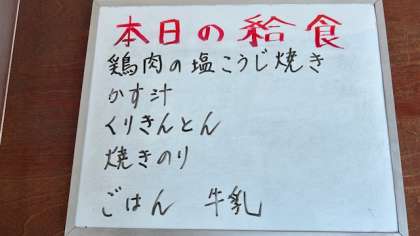 本日の給食
鶏肉の塩こうじ焼き
かす汁
くりきんとん
焼きのり
ごはん 牛乳